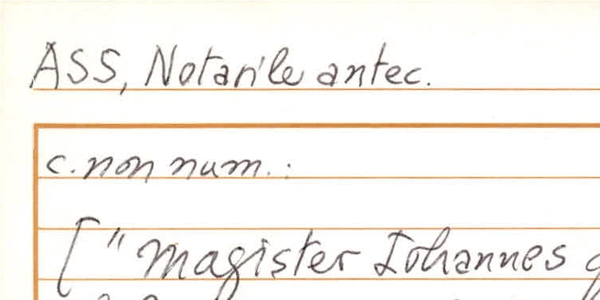 ASS, Notarile antec.
c. non num.:
["magister Iohannes